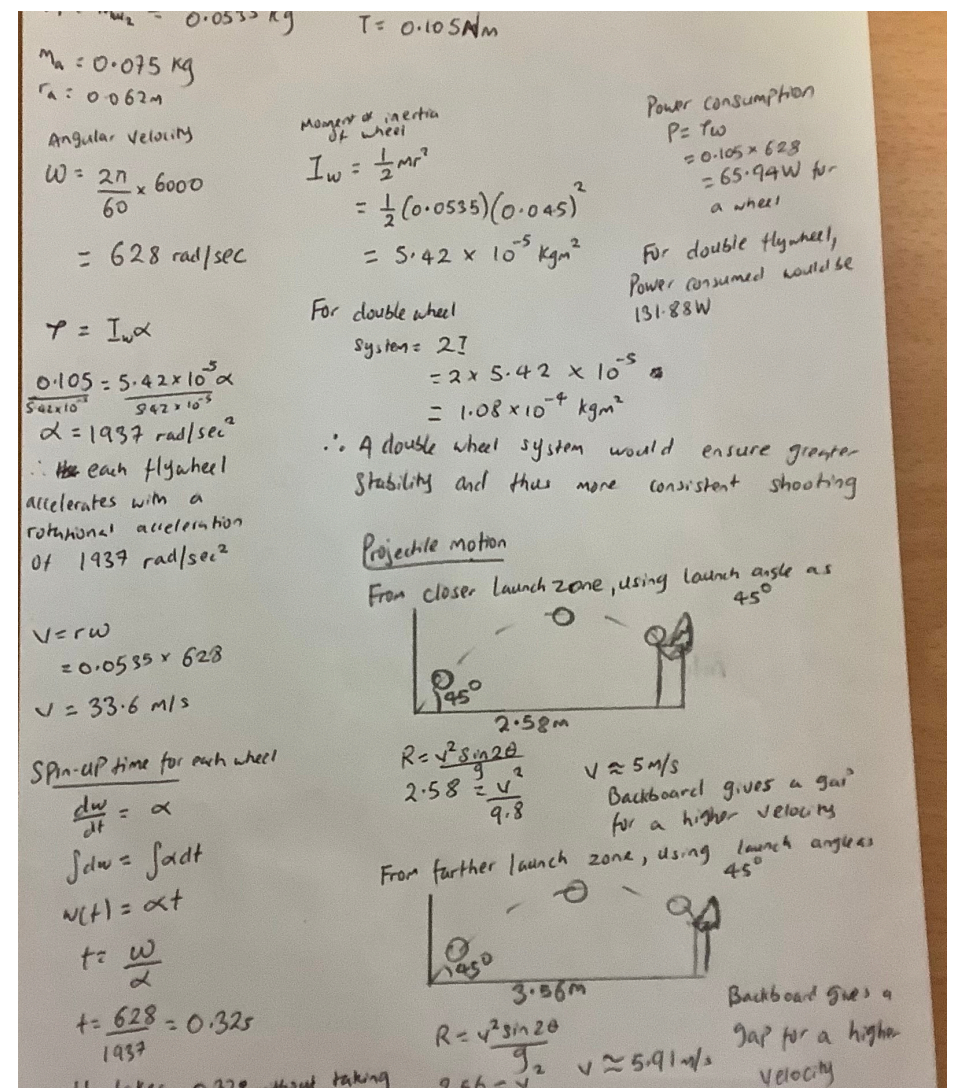 0.0535 kg
T = 0.105Nm
Ma = 0.075 kg
ra = 0.062m
Angular velocity
ω = 2π/60 × 6000
= 628 rad/sec
τ = Iwα
0.105 = 5.42×10⁻⁵α
5.42×10⁻⁵ 5.42×10⁻⁵
α = 1937 rad/sec²
∴ each flywheel
accelerates with a
rotational acceleration
of 1937 rad/sec²
V = rω
= 0.0535 × 628
V = 33.6 m/s
Spin-up time for each wheel
dω/dt = α
∫dω = ∫αdt
ω(t) = αt
t = ω/α
t = 628/1937 = 0.32s
Moment of inertia
of wheel
Iw = 1/2 mr²
= 1/2 (0.0535)(0.045)²
= 5.42 × 10⁻⁵ kgm²
For double wheel
System = 2I
= 2 × 5.42 × 10⁻⁵
= 1.08 × 10⁻⁴ kgm²
∴ A double wheel system would ensure greater
Stability and thus more consistent shooting
Power consumption
P = τω
= 0.105 × 628
= 65.94W for
a wheel
For double flywheel,
Power consumed would be
131.88W
Projectile motion
From closer launch zone, using launch angle as
45°
45°
2.58m
R = v² sin2θ/g
2.58 = v²/9.8
V ≈ 5m/s
Backboard gives a gap
for a higher velocity
From farther launch zone, using launch angle as
45°
45°
3.56m
R = v² sin2θ/g
V ≈ 5.91 m/s
Backboard gives a
gap for a higher
velocity
without taking